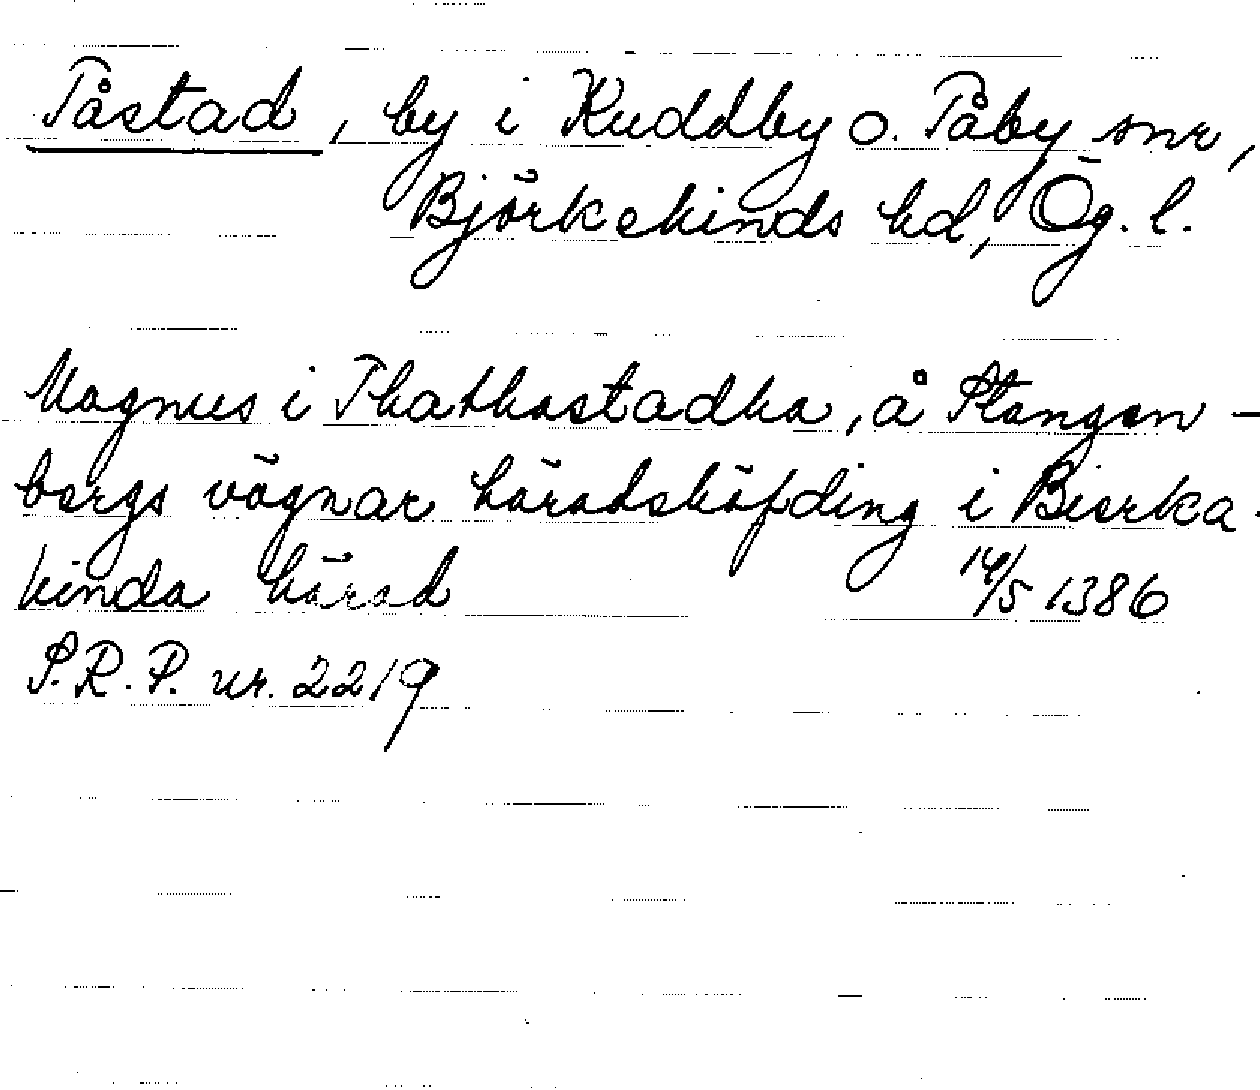 Tåstad, by i Kuddby o. Tåby snr,
Björkekinds hd, Ög. l.
Magnus i Thathastadha, å Stangen-
bergs vägnar häradshöfding i Bierka-
kinda härad 14/5 1386
S.R.P. nr. 2219